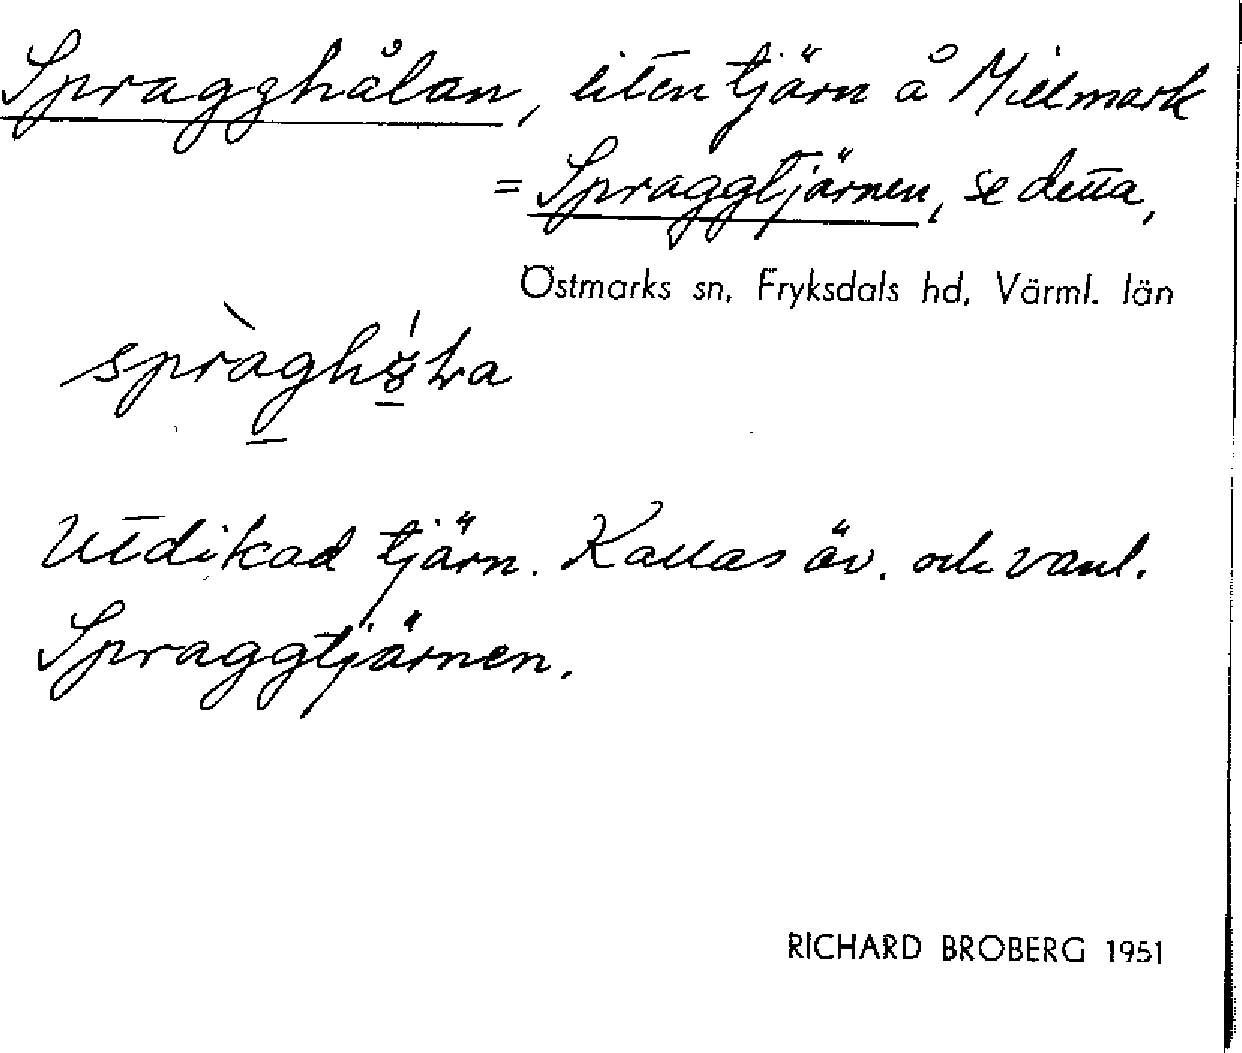 Spragghålan, liten tjärn å Millmark
= Spraggtjärnen, se detta,
Östmarks sn, Fryksdals hd, Värml. län
Utdikad tjärn. Kallas äv. och vanl.
Spraggtjärnen.
RICHARD BROBERG 1951